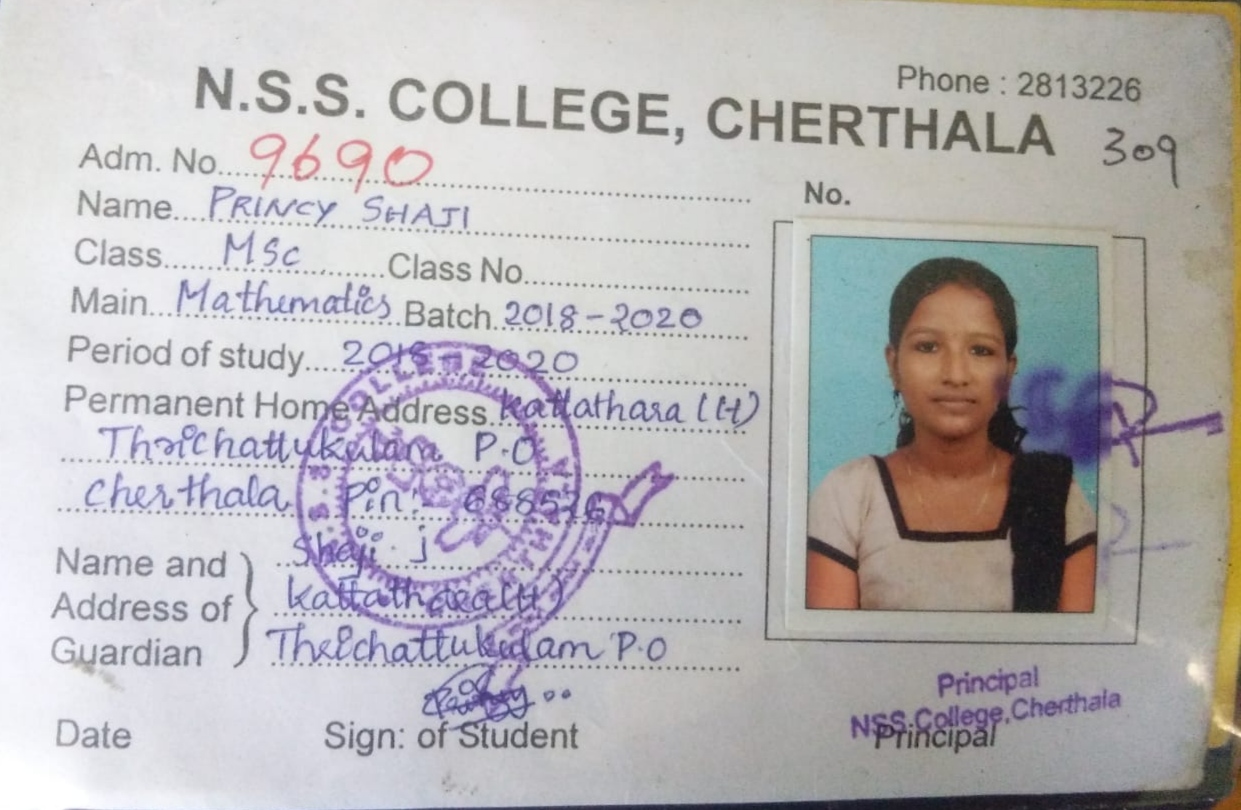 Phone : 2813226
N.S.S. COLLEGE, CHERTHALA
309
Adm. No. 9690
No.
Name PRINCY SHAJI
Class MSc Class No.
Main Mathematics Batch 2018-2020
Period of study 2018-2020
Permanent Home Address Kattathara (H)
Thrichattukulam P.O
Cherthala Pin:- 688526
Name and Address of Guardian
Shaji. J
Kattathara(H)
Thrichattukulam P.O
Principal
NSS College, Cherthala
Date Sign: of Student Principal